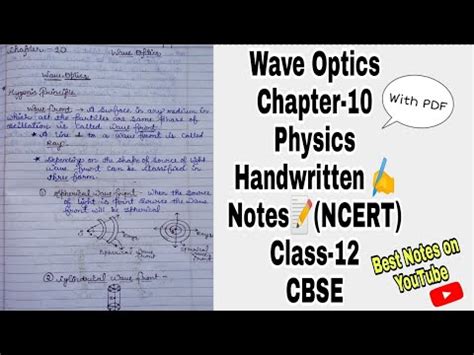 Chapter - 10 Wave Optics
Wave Optics
Hygen's Principle
Wave front → A surface in any medium in
which all the particles are same phase of
oscillation is called wave front.
* A line ⊥ to a wave front is called
Ray.
* Depending on the shape of source of light
wave front can be classified in
three form.
① Spherical wave front - when the source
of light is point source the wave
front will be spherical.
Spherical
wave front
② Cylindrical wave front -
Wave Optics
Chapter-10
With PDF
Physics
Handwritten ✍
Notes📝(NCERT)
Class-12
CBSE
Best Notes on
YouTube